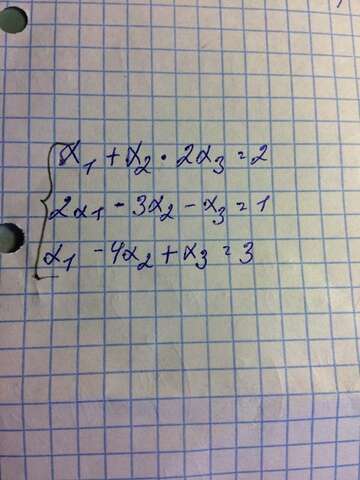 x₁ + x₂ · 2x₃ = 2
2x₁ - 3x₂ - x₃ = 1
x₁ - 4x₂ + x₃ = 3